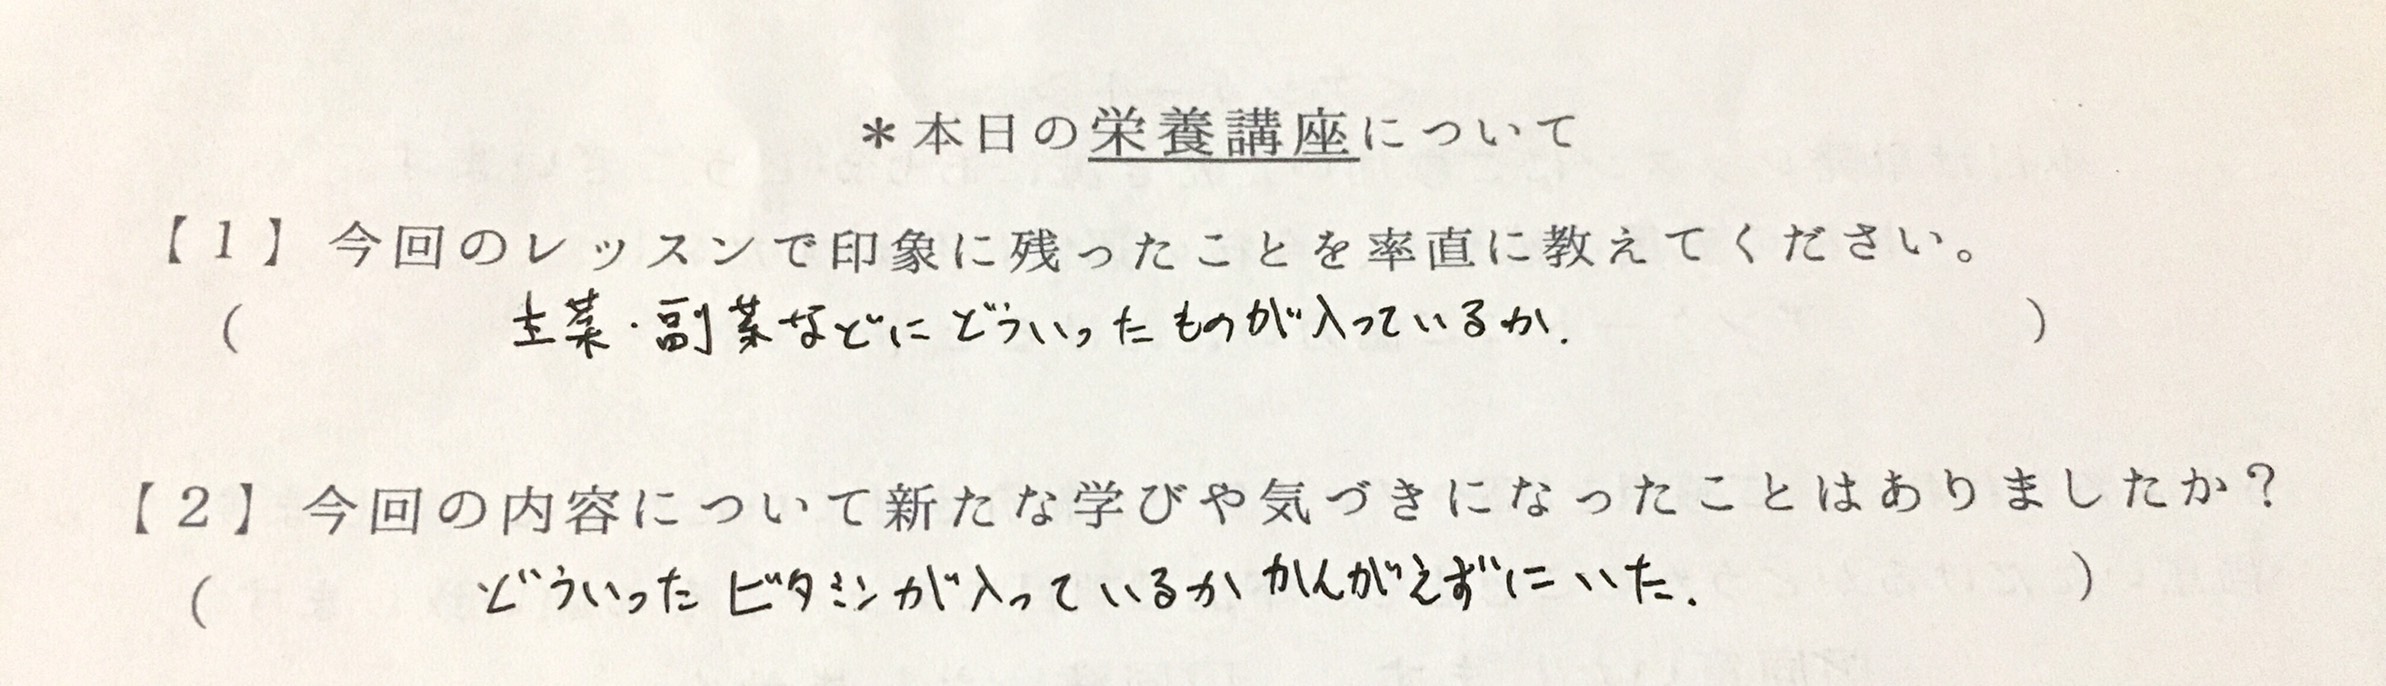 ＊本日の栄養講座について
【１】今回のレッスンで印象に残ったことを率直に教えてください。
（主菜・副菜などにどういったものが入っているか.）
【２】今回の内容について新たな学びや気づきになったことはありましたか？
（どういったビタミンが入っているかかんがえずにいた.）